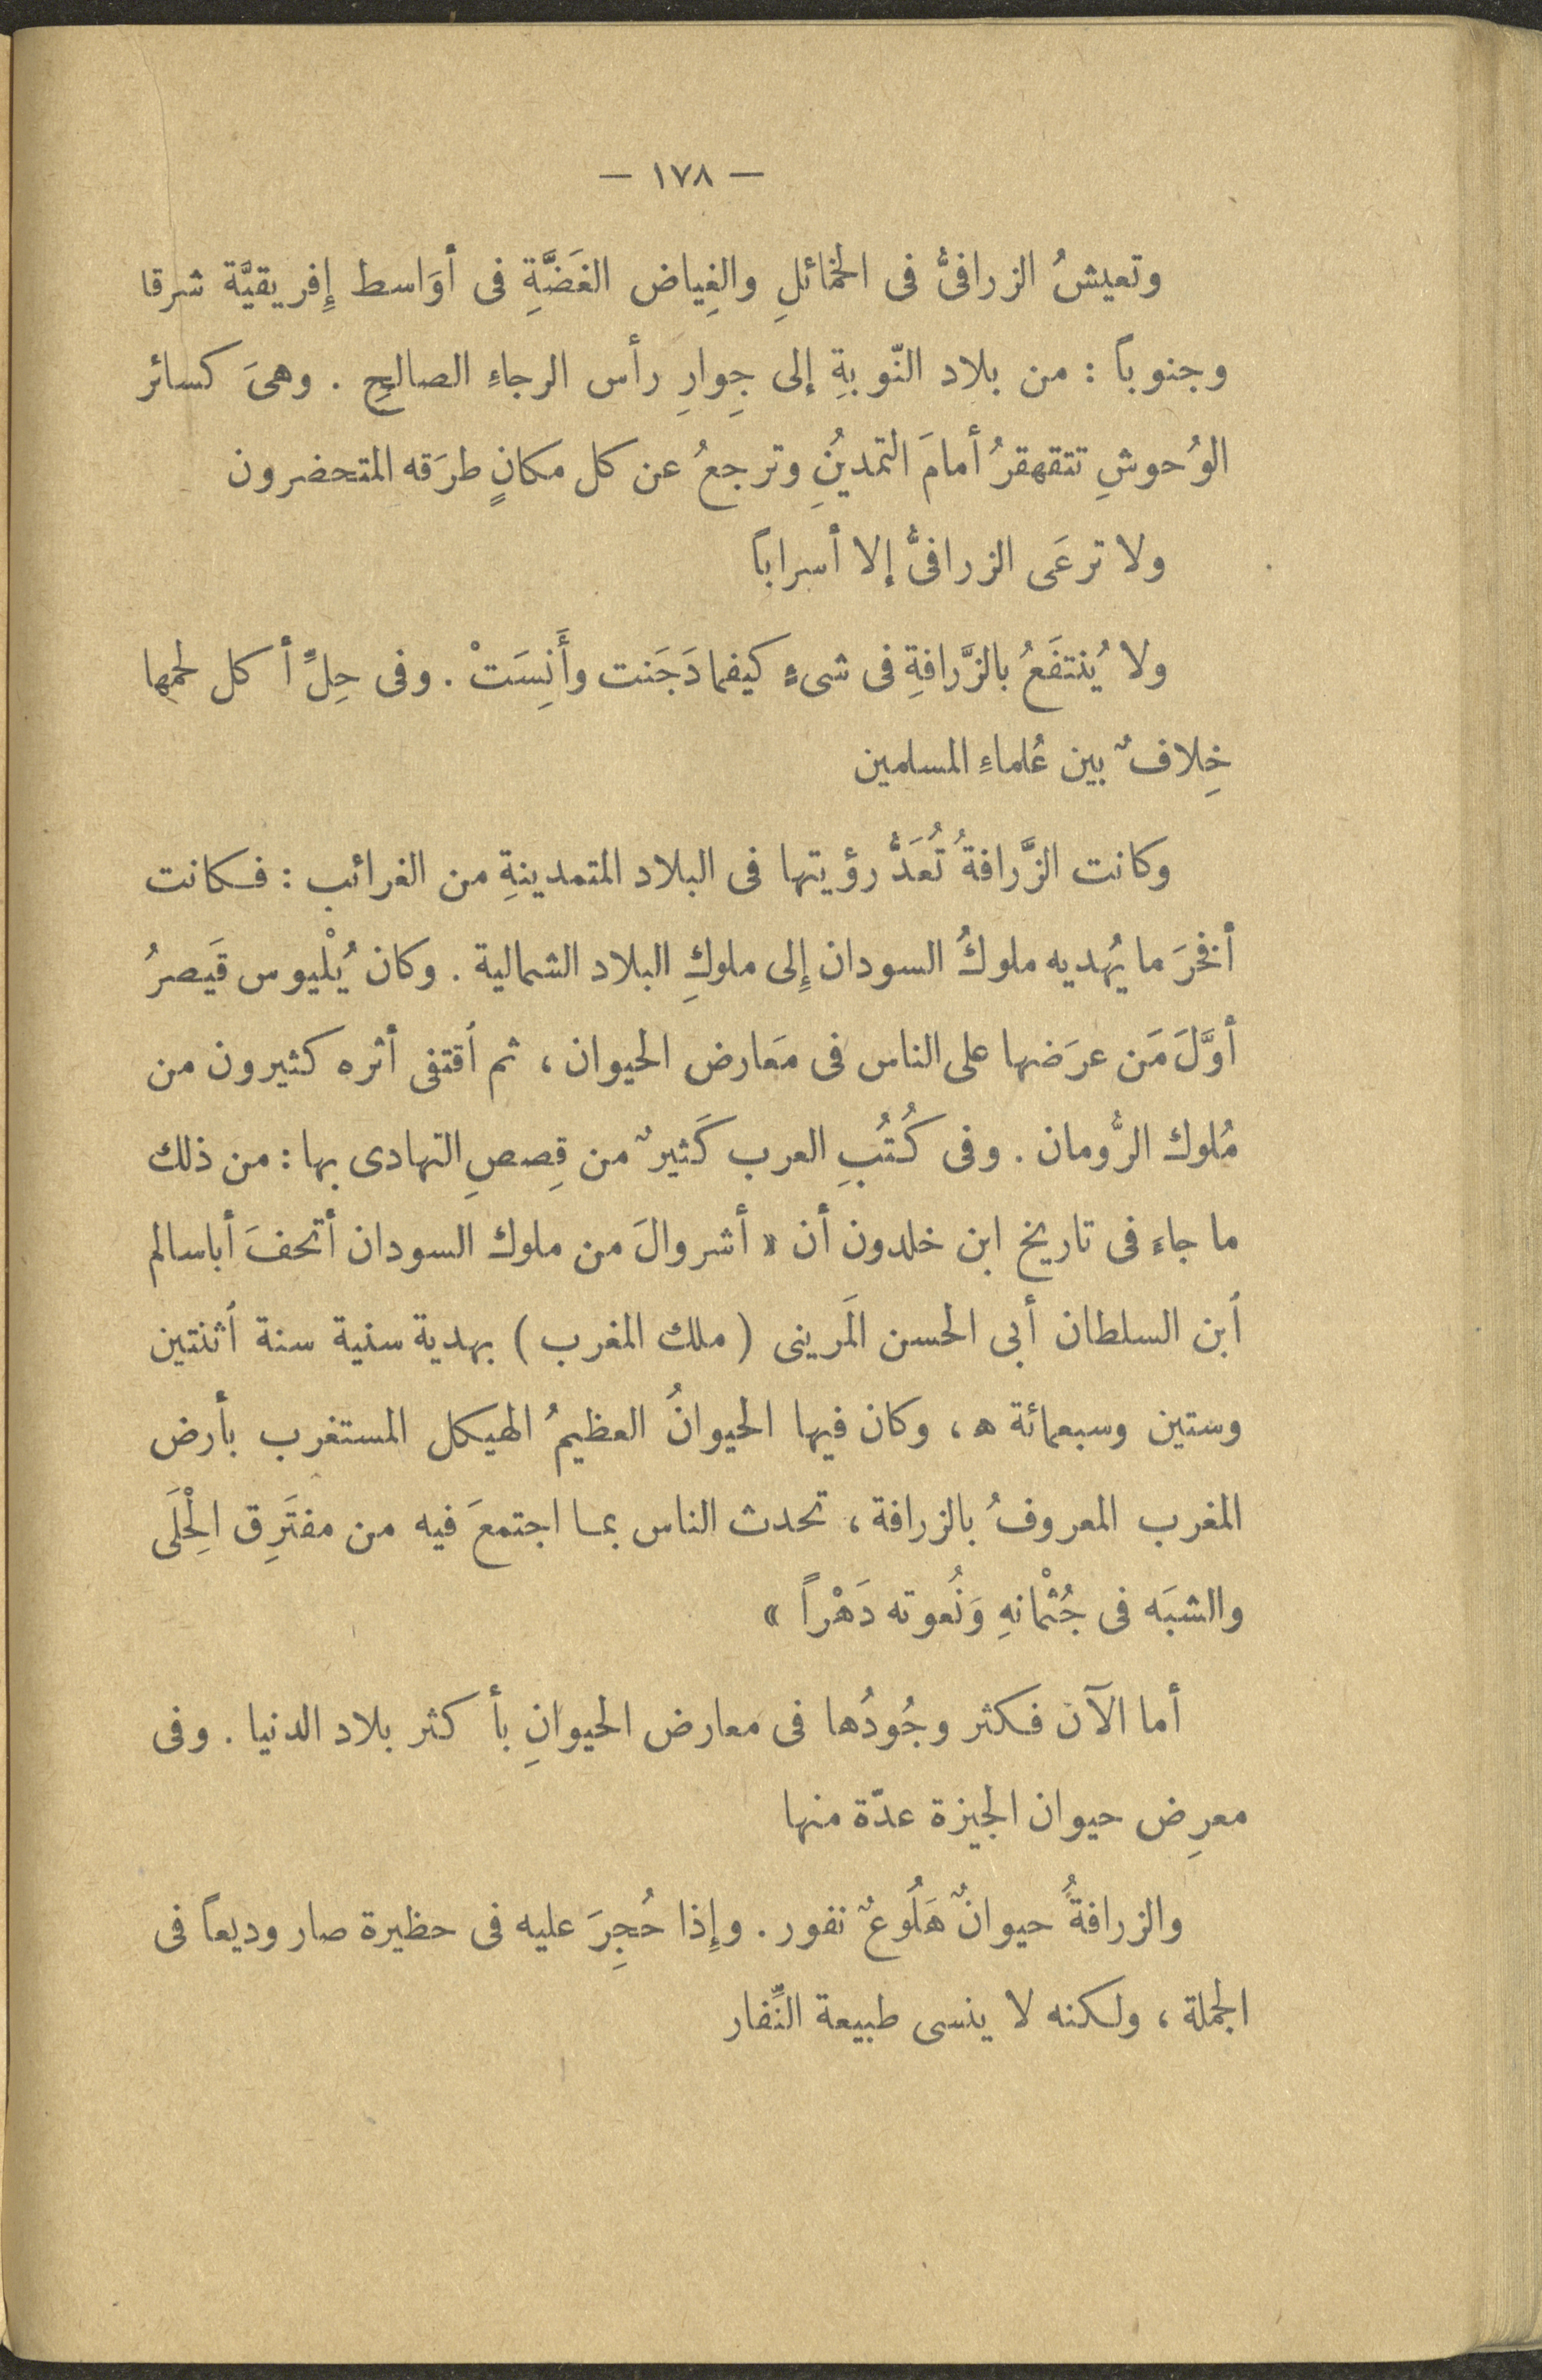 — ١٧٨ —
وتعيشُ الزرافىُّ فى الخمائلِ والغِياض الغَضَّةِ فى أوَاسط إِفريقيَّة شرقا
وجنوباً : من بلاد النّوبةِ إلى جِوارِ رأس الرجاءِ الصالحِ . وهىَ كسائر
الوُحوشِ تتقهقرُ أمامَ التمديُنِ وترجعُ عن كل مكانٍ طرَقه المتحضرون
ولا ترعَى الزرافىُّ إلا أسراباً
ولا يُنتفَعُ بالزَّرافةِ فى شىءٍ كيفما دَجَنت وأَنِسَتْ . وفى حِلِّ أكل لحمها
خِلافٌ بين عُلماءِ المسلمين
وكانت الزَّرافةُ تُعَدُّ رؤيتها فى البلاد المتمدينةِ من الغرائب : فكانت
أفخرَ ما يُهديه ملوكُ السودان إِلى ملوكِ البلاد الشمالية . وكان يُلْيوس قَيصرُ
أوَّلَ مَن عرَضها على الناس فى مَعارض الحيوان ، ثم اُقتفى أثره كثيرون من
مُلوك الرُّومان . وفى كُتُبِ العرب كَثيرٌ من قِصصِ التهادى بها : من ذلك
ما جاء فى تاريخ ابن خلدون أن « أشروالَ من ملوك السودان أتحفَ أباسالم
اُبن السلطان أبى الحسن المَرينى ( ملك المغرب ) بهدية سنية سنة اُثنتين
وستين وسبعمائة ه ، وكان فيها الحيوانُ العظيمُ الهيكل المستغرب بأرض
المغرب المعروفُ بالزرافة ، تحدث الناس بما اجتمعَ فيه من مفتَرِق الْحِلَى
والشبَه فى جُثْمانهِ وَنُعوته دَهْراً »
أما الآن فكثر وجُودُها فى معارض الحيوانِ بأكثر بلاد الدنيا . وفى
معرِض حيوان الجيزة عدّة منها
والزرافةُ حيوانٌ هَلُوعٌ نفور . وإِذا حُجِرَ عليه فى حظيرة صار وديعاً فى
الجملة ، ولكنه لا ينسى طبيعة النِّفار